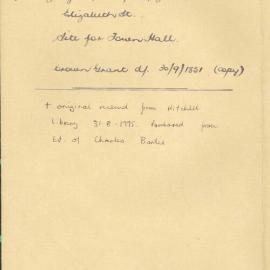 Elizabeth St.
Site for Town Hall.
Crown Grant d/. 30/9/1851 (copy)
+ original received from Mitchell
Library 31-8-1995. Purchased from
Ed. of Charles Barker